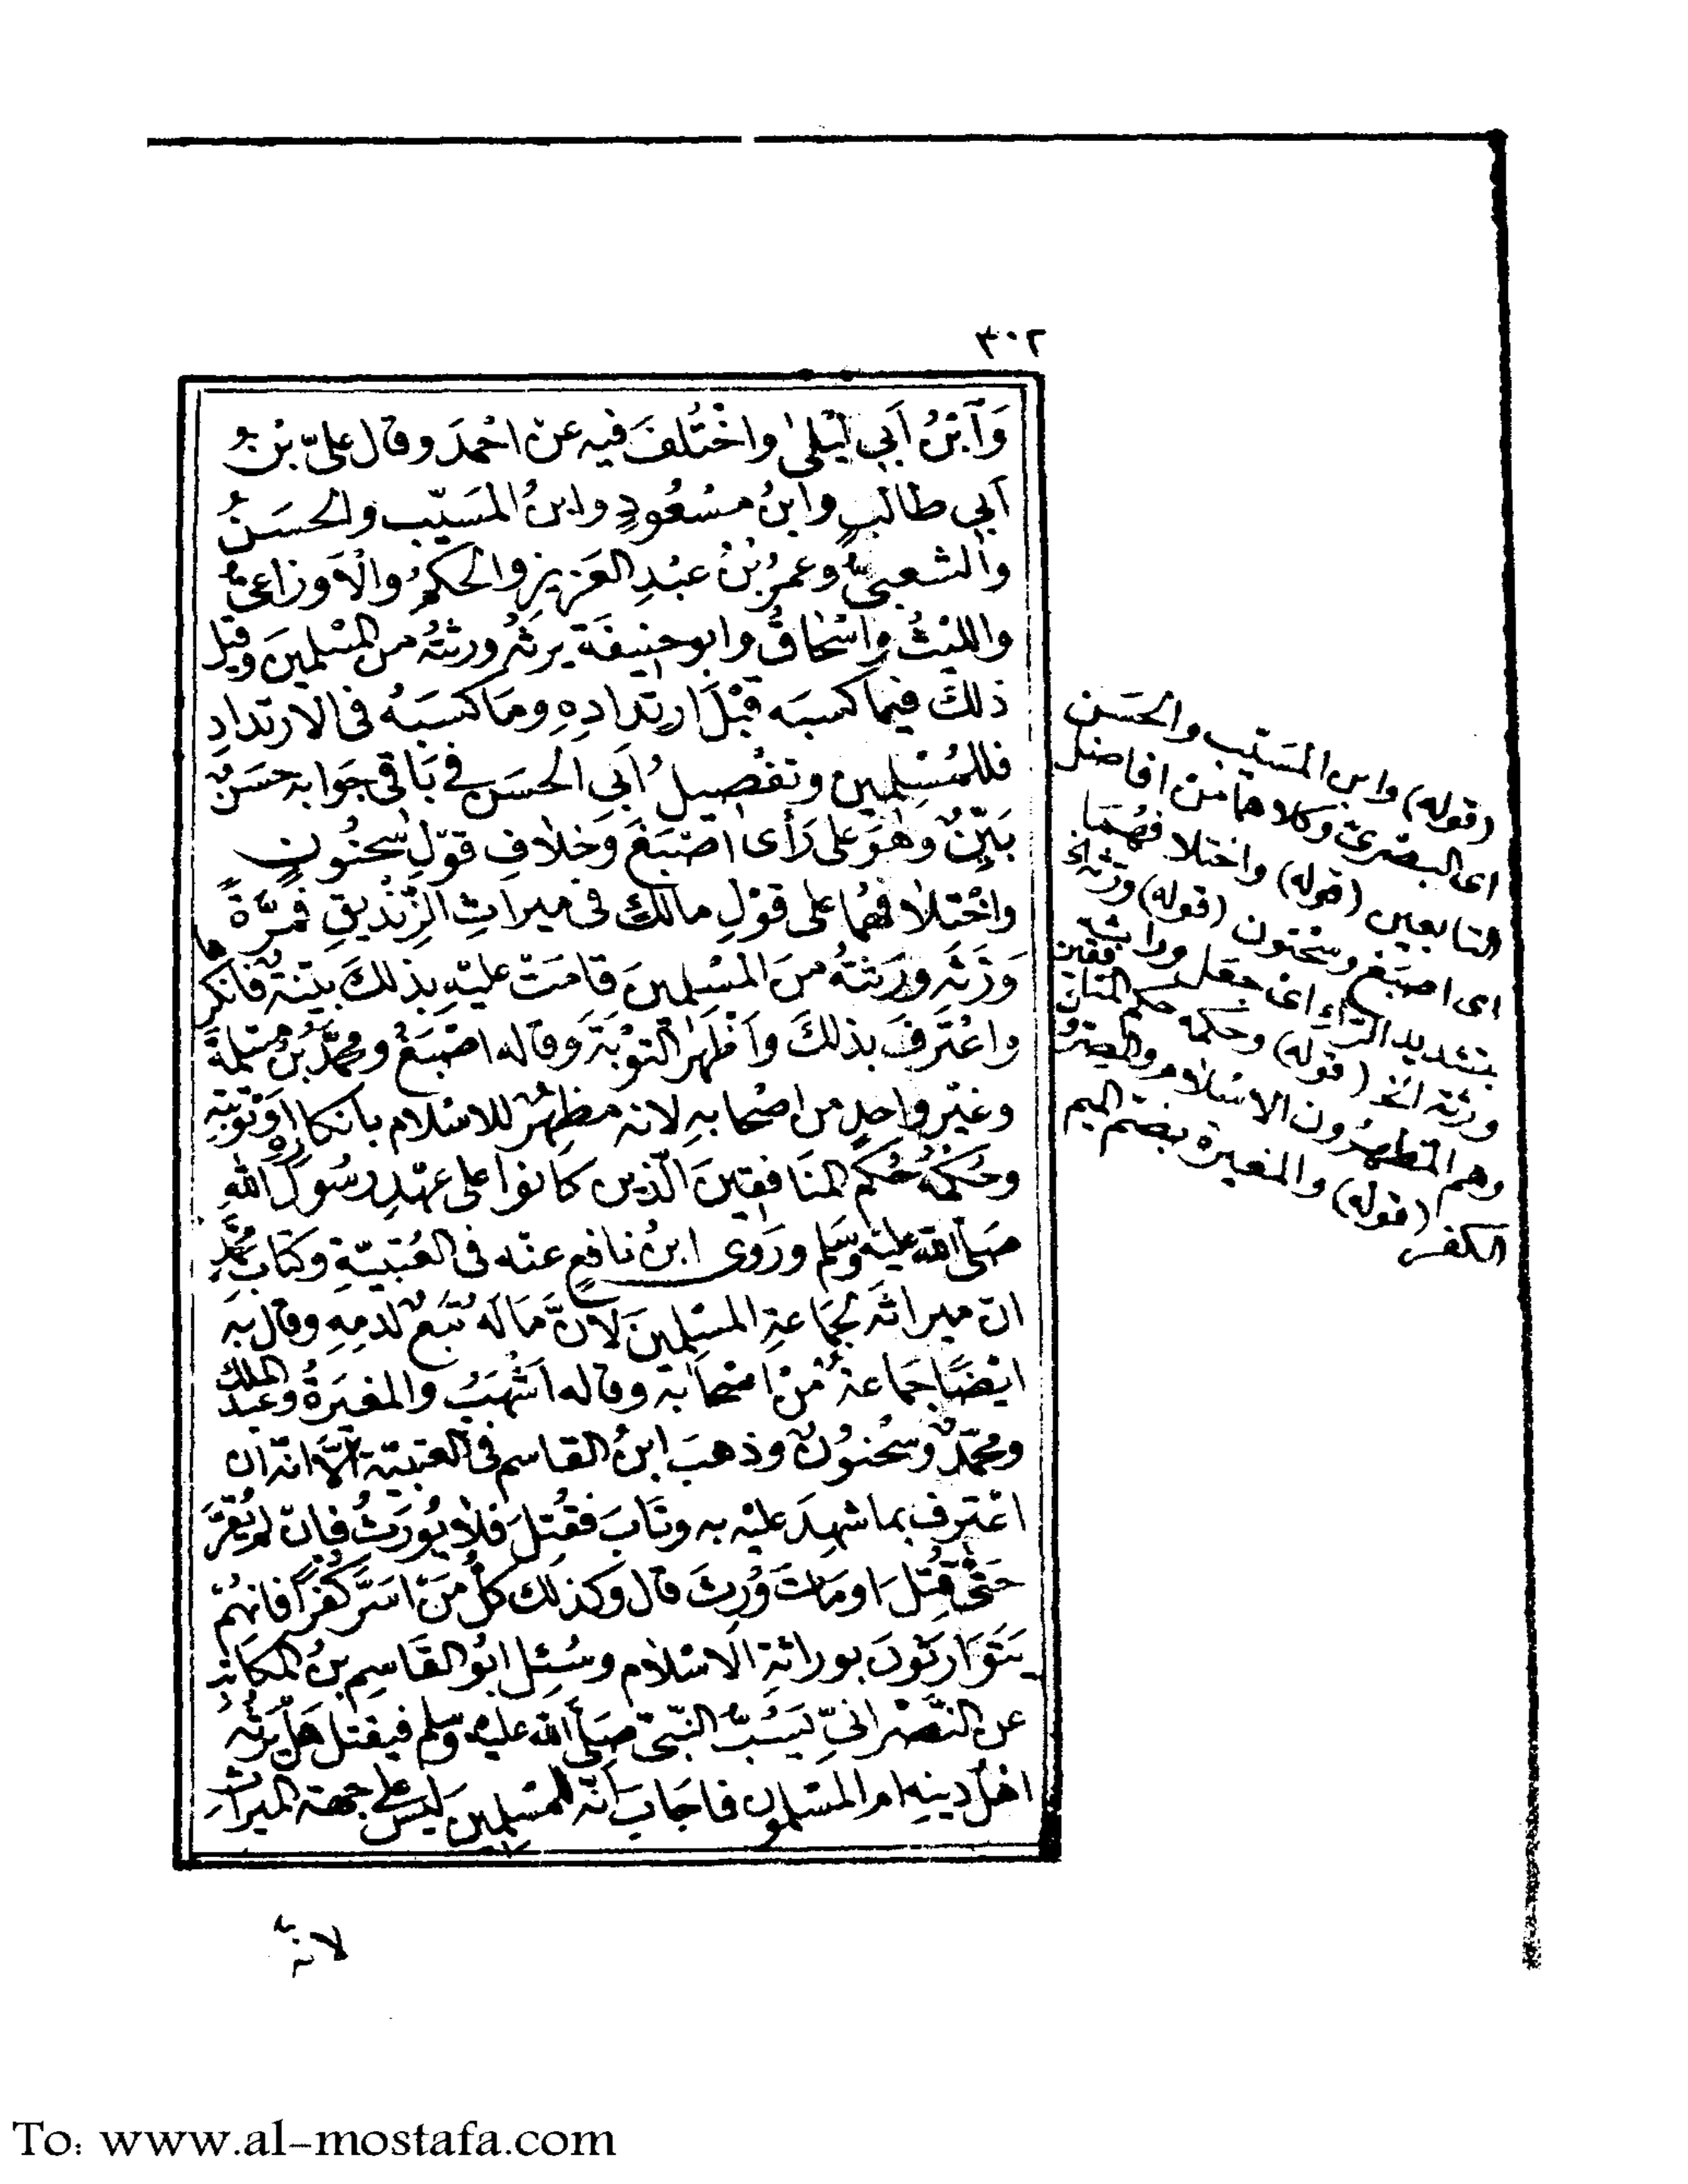 ٣٠٢
وَٱبْنُ اَبِي لَيْلٰى وَاخْتُلِفَ فيه عَنْ اَحْمَدَ وقال علىّ بْنُ
اَبِي طالبٍ وابنُ مسْعُودٍ وابنُ المسَيّب والحسَنُ
والشعبىُّ وعمرُ بْنُ عبْدِ العَزيزِ والحكمُ والْاَوزاعىُّ
والليْثُ واسْحٰاقُ وابو حنيفَة يرثهُ ورثتُهُ من المسْلمينَ وقيل
ذلكَ فيما كسبَه قبْلَ ارتدادِهِ وَمَا كسَبَهُ فى الارتدادِ
فللمُسْلِمين وتفْصيلُ اَبِي الحسَن في بَاقى جَوَابه حسَنٌ
بَيِّنٌ وَهْوَ على رَأى اصْبَغَ وخلافِ قوْلِ سحنُونٍ
واخْتلافُهُما على قوْلِ مالكٍ فى ميراثِ الزِّنْديقِ فمَرَّةً
وَرَّثَه ورَثتُهُ منَ المسْلِمينَ قامَتْ عليْهِ بذلكَ بيّنةٌ فانكرها
واعْتَرفَ بذلكَ وَاَظهَرَ التوْبَةَ وَقاله اصْبَغُ ومحمّدُ بْنُ مسْلمَةَ
وغيْرُ واحدٍ من اصْحابِهِ لانه مظهِرٌ للاسْلام بانكارِهِ اوْتوْبَتِهِ
وحُكمُهُ حُكمُ المنَافقينَ الّذين كانوا على عهْدِ رسُول اللهِ
صَلّى الله عليْه وسَلم وروَى ابنُ نافعٍ عنْه فى العُتبيّةِ وكتابِ محمّدٍ
انّ ميراثَه لجمَاعةِ المسْلِمينَ لانَّ مَالَه تَبَعٌ لدمِهِ وقال بِهِ
ايْضًا جَماعةٌ مِنْ اصْحَابِه وقاله اَشْهَبُ والمغيرَةُ وعبْدُ الملك
ومحمّدٌ وسُحنونٌ وذهبَ ابنُ القاسم فى العتبيّة الى انّه ان
اعْترف بما شهِدَ عليْه به وتابَ فقُتِلَ فلا يُورَثُ فان لم يُقِرَّ
حَتى قُتِلَ اومَاتَ وُرِثَ قال وكذلك كلُّ مَنْ اسَرَّ كفرًا فانهُمْ
يتَوَارَثُونَ بوراثةِ الاسْلام وسُئِل ابُو القَاسِمِ بنُ الكاتبِ
عن النّصْرانىِّ يَسُبُّ النّبىّ صَلّى الله عليه وسلم فيقتل هَلْ يَرثهُ
اهْلُ دينِهِ ام المسْلمون فاجَابَ انّه للمسْلِمين ليْسَ على جهة الميراثِ
لانهُ
(قوله) وابن المسَيّب والحسَن
اى البصْرىّ وكلاهما من افاضل
التابعين (قوله) واختلافهما
اى اصبَغ وسحنون (قوله) ورّثه الخ
بتشديد الرّاء اى جعل وراثه
ورثته الخ (قوله) وحكمه حكم المنافقين
وهم المظهرُون الاسْلام والمصرّون
الكفر (قوله) والمغيرة بضمّ الميم
To: www.al-mostafa.com